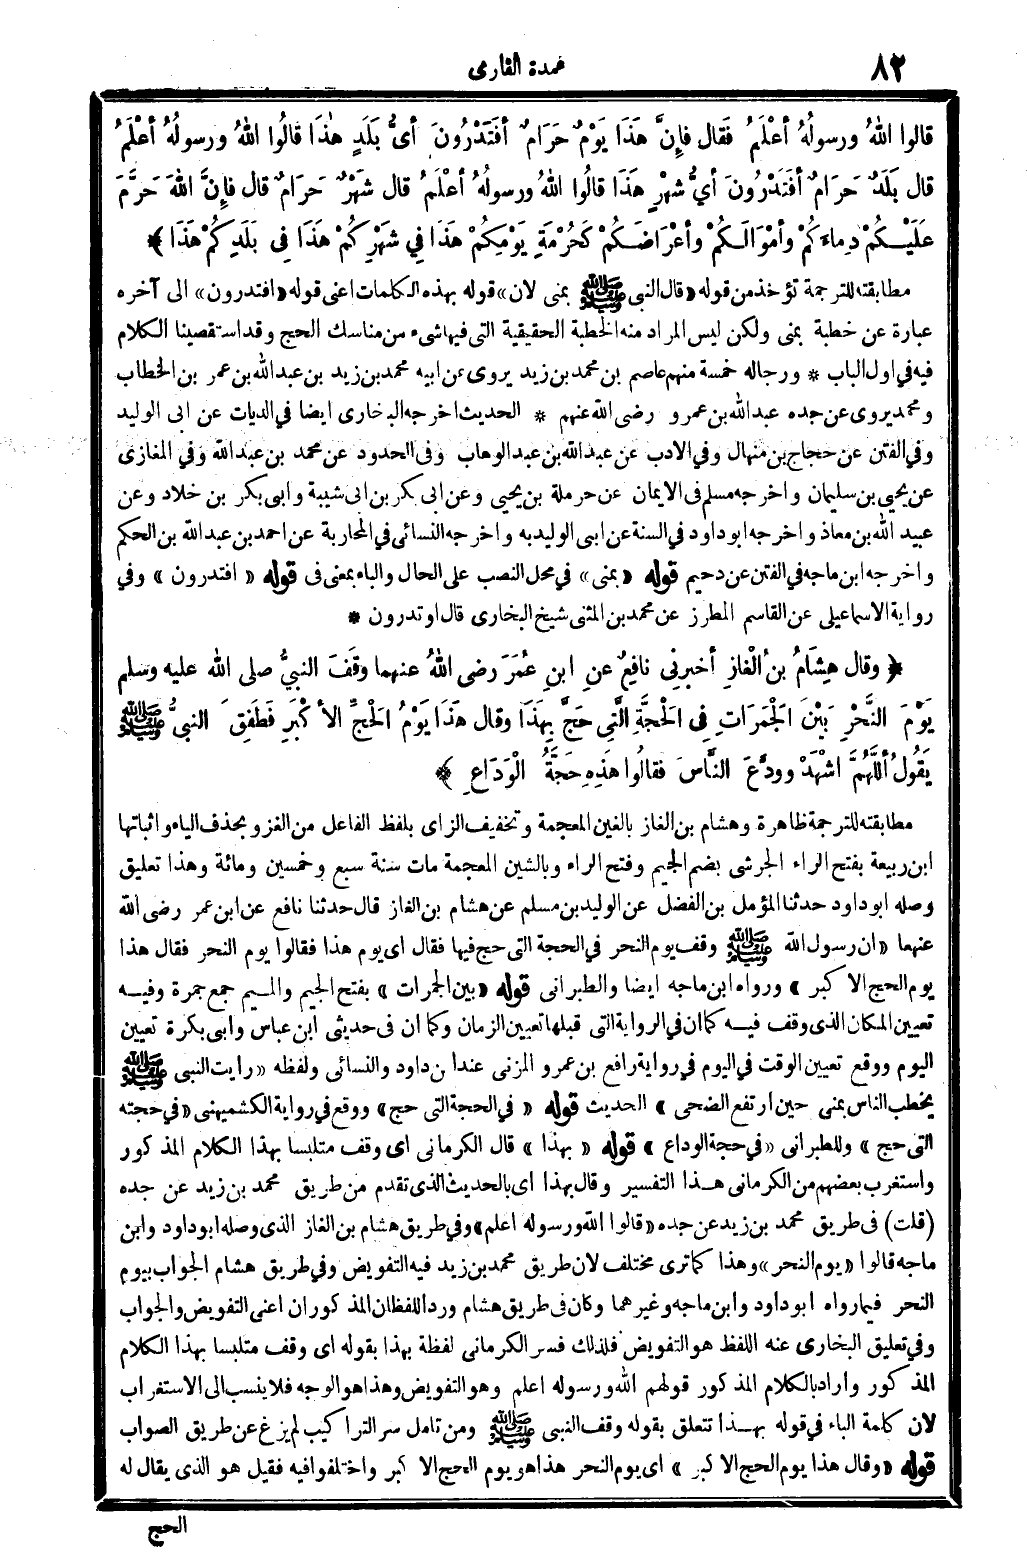 ٨٢
عمدة القارى
قالوا اللهُ ورسولُهُ أعْلَمُ فَقَال فإِنَّ هَذَا يَوْمٌ حَرَامٌ أفَتَدْرُونَ أىُّ بَلَدٍ هٰذَا قالُوا اللهُ ورسولُهُ أعْلَمُ
قال بَلَدٌ حَرامٌ أفَتَدْرُونَ أيُّ شهْرٍ هَذَا قالُوا اللهُ ورسولُهُ أعْلَمُ قال شَهْرٌ حَرامٌ قال فإِنَّ اللهَ حَرَّمَ
عَلَيْـكُمْ دِماءَكُمْ وأمْوَالَـكُمْ وأعْرَاضَـكُمْ كَحُرْمَةِ يَوْمِكُمْ هَذَا فِي شَهْرِكُمْ هَذَا فِى بَلَدِكُمْ هَذَا ﴾
مطابقته للترجمة تؤخذ من قوله «قال النبى ﷺ بمنى لان» قوله بهذه الكلمات اعنى قوله «افتدرون» الى آخره
عبارة عن خطبة بمنى ولكن ليس المراد منه الخطبة الحقيقية التى فيها شىء من مناسك الحج وقد استقصينا الكلام
فيه فى اول الباب * ورجاله خمسة منهم عاصم بن محمد بن زيد يروى عن ابيه محمد بن زيد بن عبد الله بن عمر بن الخطاب
ومحمد يروى عن جده عبد الله بن عمرو رضى الله عنهم * الحديث اخرجه البخارى ايضا فى الديات عن ابى الوليد
وفى الفتن عن حجاج بن منهال وفى الادب عن عبد الله بن عبد الوهاب وفى الحدود عن محمد بن عبد الله وفى المغازى
عن يحيى بن سليمان واخرجه مسلم فى الايمان عن حرملة بن يحيى وعن ابى بكر بن ابى شيبة وابى بكر بن خلاد وعن
عبيد الله بن معاذ واخرجه ابو داود فى السنة عن ابى الوليد به واخرجه النسائى فى المحاربة عن احمد بن عبد الله بن الحكم
واخرجه ابن ماجه فى الفتن عن دحيم قوله «بمنى» فى محل النصب على الحال والباء بمعنى فى قوله «افتدرون» وفى
رواية الاسماعيلى عن القاسم المطرز عن محمد بن المثنى شيخ البخارى قال اوتدرون *
﴿ وقال هِشَامُ بنُ الْغازِ أخبرنِى نافِعٌ عنِ ابنِ عُمَرَ رضى اللهُ عنهما وقَفَ النبيُّ صلى الله عليه وسلم
يَوْمَ النَّحْرِ بَيْنَ الجَمَرَاتِ فِى الحَجَّةِ الَّتِى حَجَّ بِهَذَا وقال هَذَا يَوْمُ الحَجِّ الأكْبَرِ فَطَفِقَ النبىُّ ﷺ
يَقُولُ أللَّهُمَّ اشْهَدْ وودَّعَ النَّاسَ فقالُوا هَذِهِ حَجَّةُ الْوَدَاعِ ﴾
مطابقته للترجمة ظاهرة وهشام بن الغاز بالغين المعجمة وتخفيف الزاى بلفظ الفاعل من الغزو بحذف الياء واثباتها
ابن ربيعة بفتح الراء الجرشى بضم الجيم وفتح الراء وبالشين المعجمة مات سنة سبع وخمسين ومائة وهذا تعليق
وصله ابو داود حدثنا المؤمل بن الفضل عن الوليد بن مسلم عن هشام بن الغاز قال حدثنا نافع عن ابن عمر رضى الله
عنهما «ان رسول الله ﷺ وقف يوم النحر فى الحجة التى حج فيها فقال اى يوم هذا فقالوا يوم النحر فقال هذا
يوم الحج الاكبر» ورواه ابن ماجه ايضا والطبرانى قوله «بين الجمرات» بفتح الجيم والميم جمع جمرة وفيه
تعيين المكان الذى وقف فيه كما ان فى الرواية التى قبلها تعيين الزمان وكما ان فى حديثى ابن عباس وابى بكرة تعيين
اليوم ووقع تعيين الوقت فى اليوم فى رواية رافع بن عمرو المزنى عند ابن داود والنسائى ولفظه «رايت النبى ﷺ
يخطب الناس بمنى حين ارتفع الضحى» الحديث قوله «فى الحجة التى حج» ووقع فى رواية الكشميهنى «فى حجته
التى حج» وللطبرانى «فى حجة الوداع» قوله «بهذا» قال الكرمانى اى وقف متلبسا بهذا الكلام المذكور
واستغرب بعضهم من الكرمانى هذا التفسير وقال بهذا اى بالحديث الذى تقدم من طريق محمد بن زيد عن جده
(قلت) فى طريق محمد بن زيد عن جده «قالوا الله ورسوله اعلم» وفى طريق هشام بن الغاز الذى وصله ابو داود وابن
ماجه قالوا «يوم النحر» وهذا كما ترى مختلف لان طريق محمد بن زيد فيه التفويض وفى طريق هشام الجواب بيوم
النحر فيما رواه ابو داود وابن ماجه وغيرهما وكان فى طريق هشام ورد اللفظان المذكوران اعنى التفويض والجواب
وفى تعليق البخارى عنه اللفظ هو التفويض فلذلك فسر الكرمانى لفظة بهذا بقوله اى وقف متلبسا بهذا الكلام
المذكور واراد بالكلام المذكور قولهم الله ورسوله اعلم وهو التفويض وهذا هو الوجه فلا ينسب الى الاستغراب
لان كلمة الباء فى قوله بهذا تتعلق بقوله وقف النبى ﷺ ومن تامل سر التراكيب لم يزغ عن طريق الصواب
قوله «وقال هذا يوم الحج الاكبر» اى يوم النحر هذا هو يوم الحج الاكبر واختلفوا فيه فقيل هو الذى يقال له
الحج